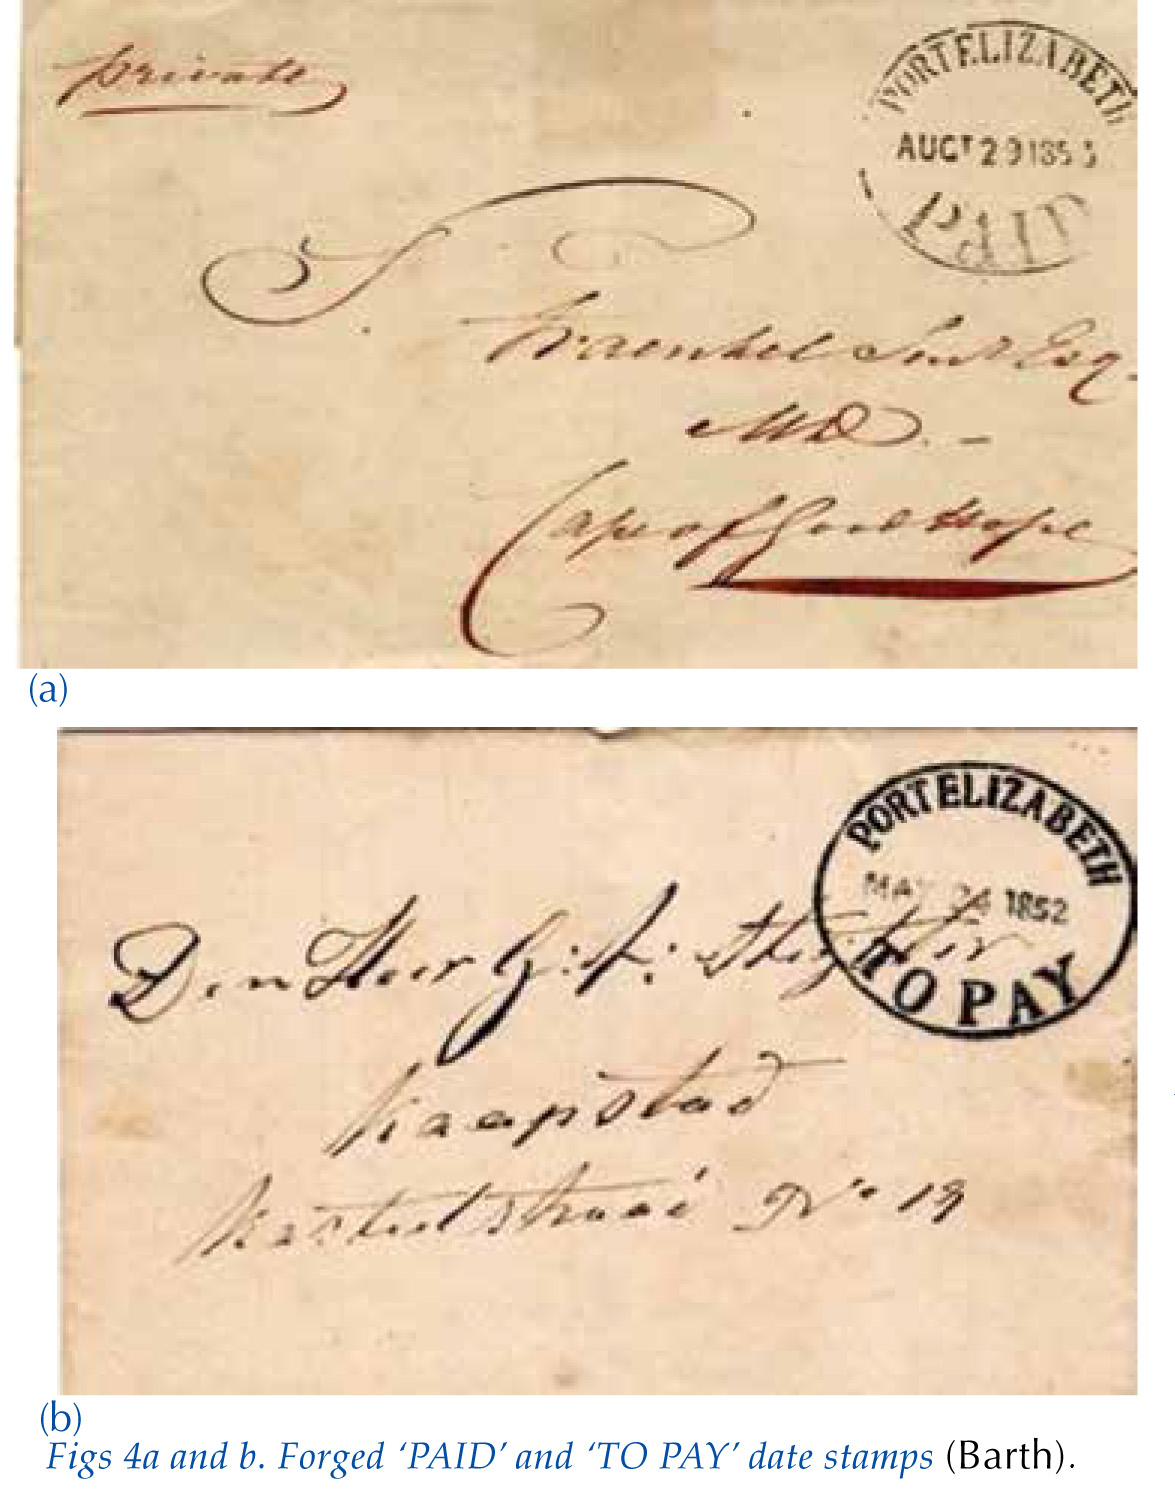 private
PORT ELIZABETH
AUGT 29 185
PAID
Esq
MD. -
Cape of Good Hope
(a)
PORT ELIZABETH
MAY 24 1852
TO PAY
Den Heer G: A:
Kaapstad
No 19
(b)
Figs 4a and b. Forged ‘PAID’ and ‘TO PAY’ date stamps (Barth).